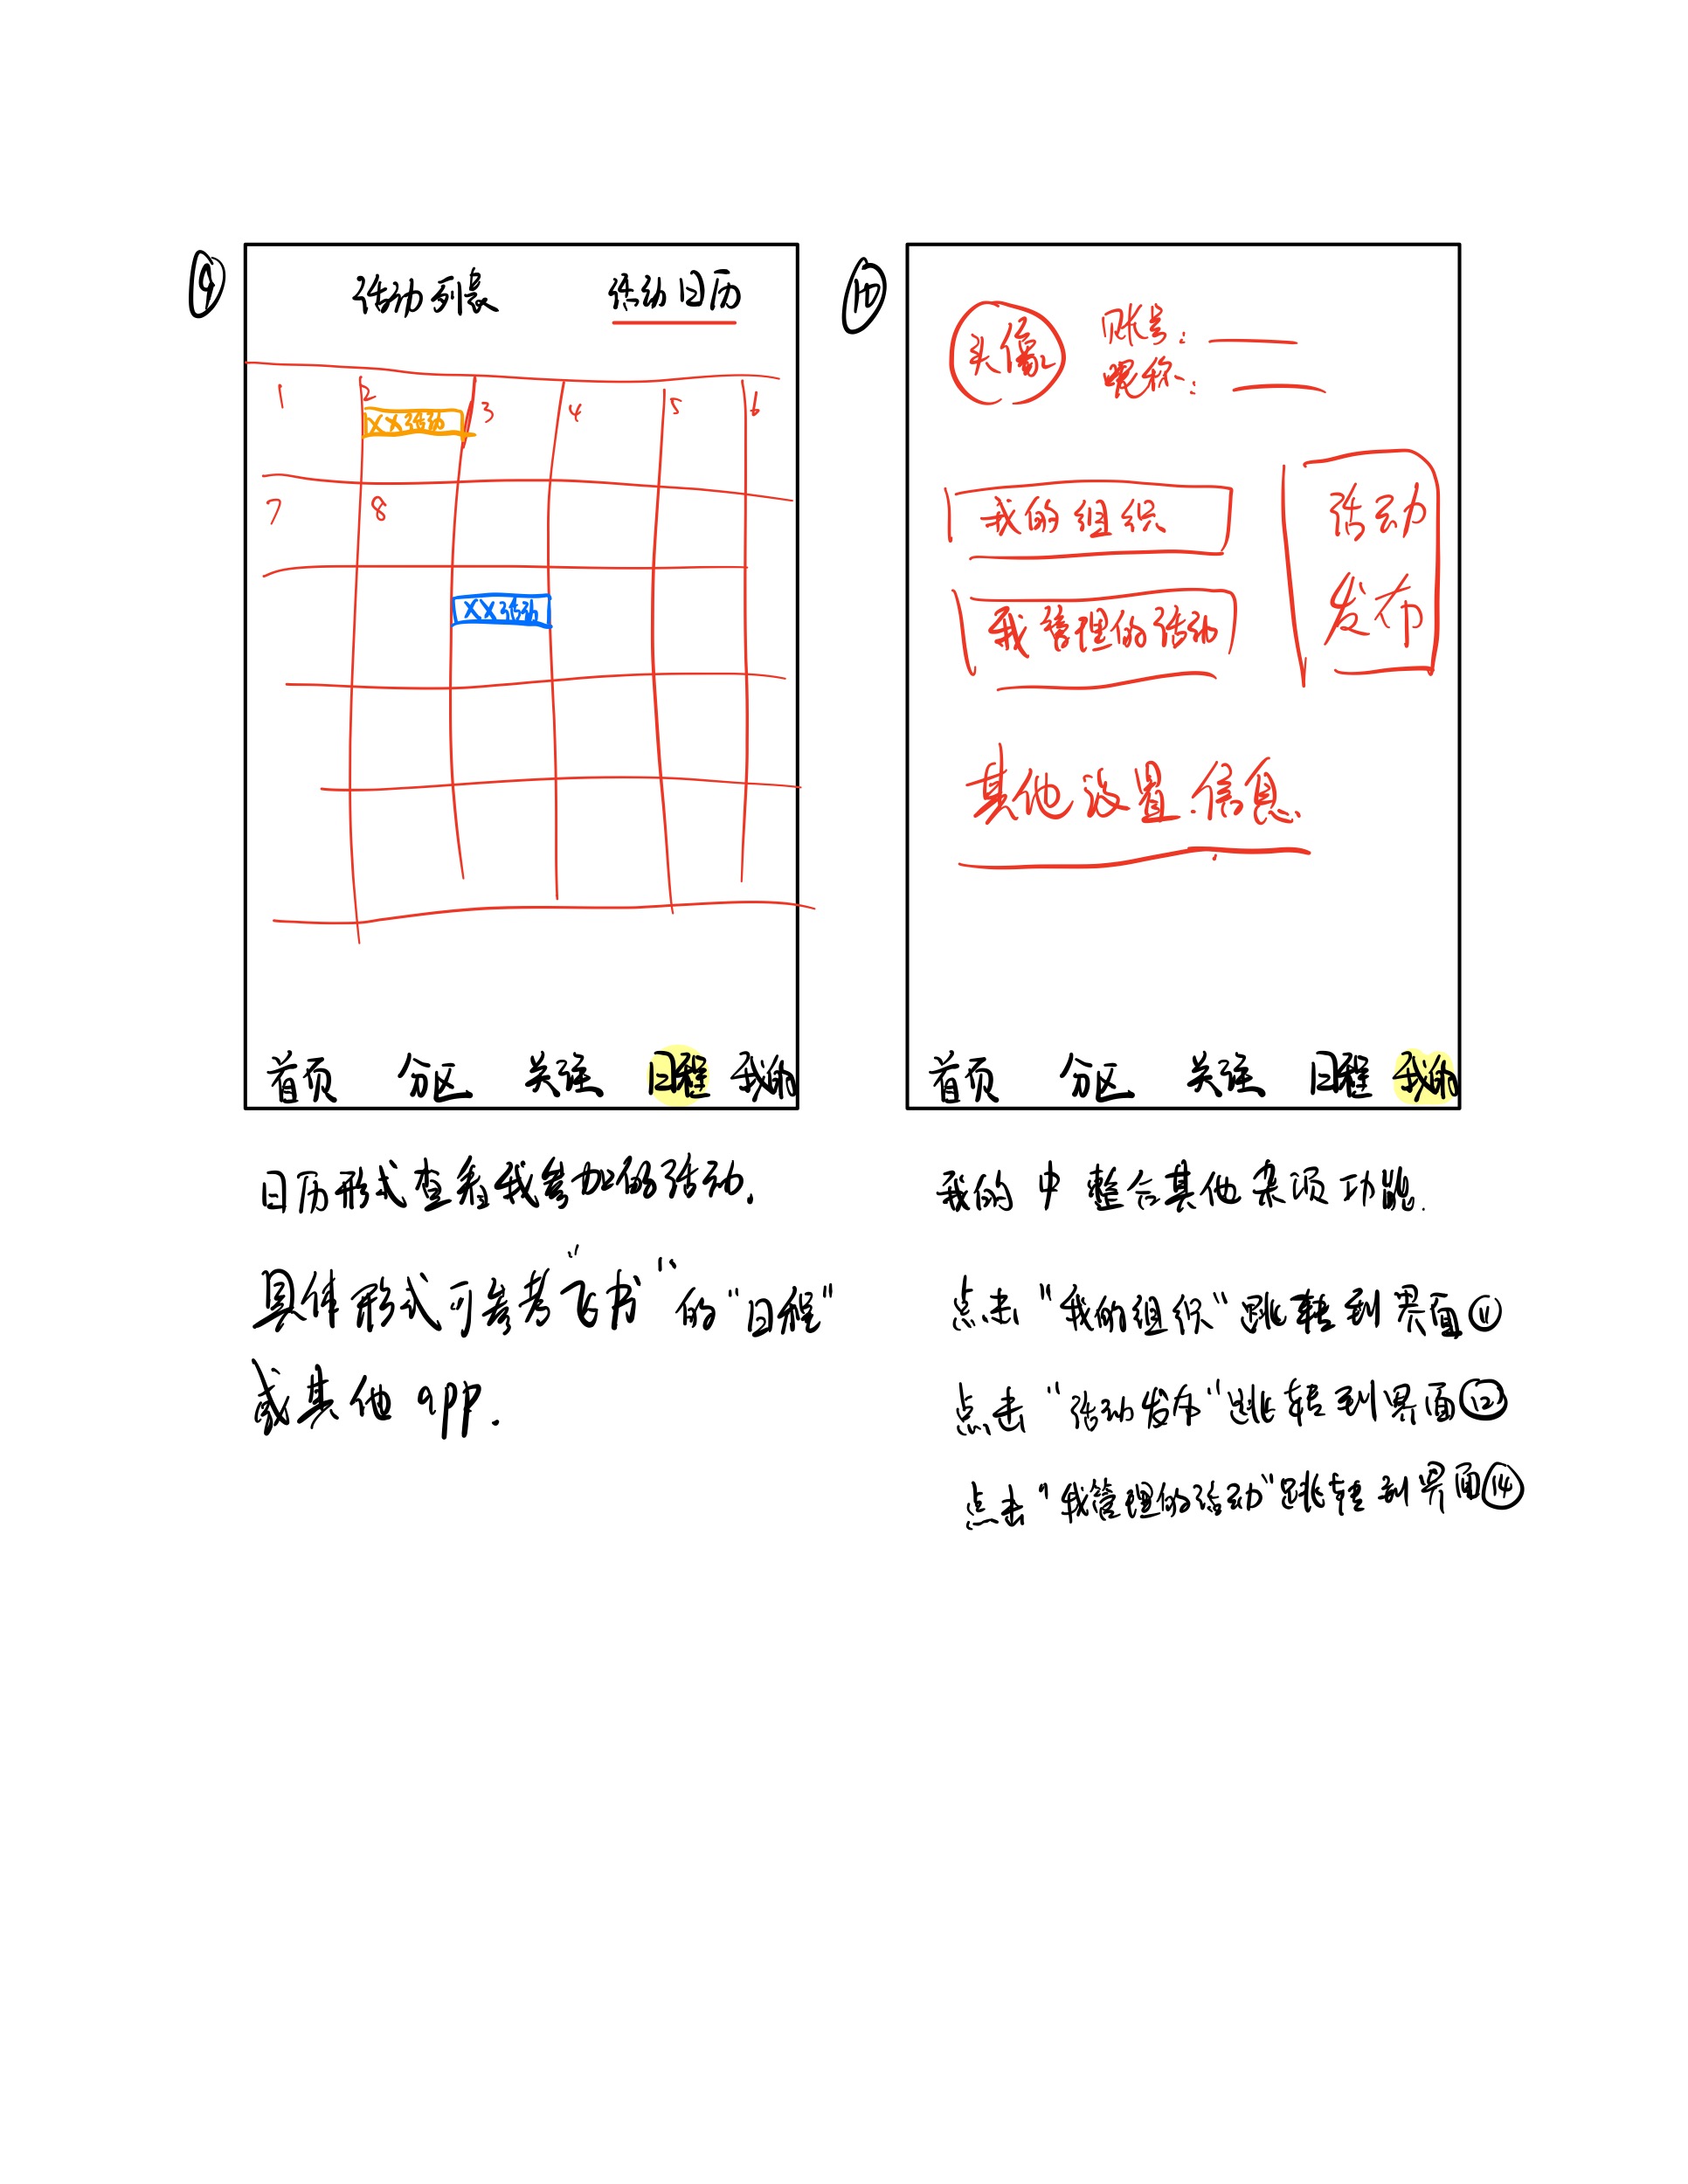 ⑨
活动列表 活动日历
1 2 3 4 5 6
XX活动
7 8
XX活动
首页 分区 关注 日程 我的
日历形式查看我参加的活动.
具体形式可参考“飞书”的“日程”
或其他app.
⑩
头像
账号:
昵称:
我的组织
我管理的活动
活动
发布
其他设置.信息.
首页 分区 关注 日程 我的
我的中整合其他杂项功能.
点击“我的组织”跳转到界面⑪
点击“活动发布”跳转到界面⑫
点击“我管理的活动”跳转到界面⑭